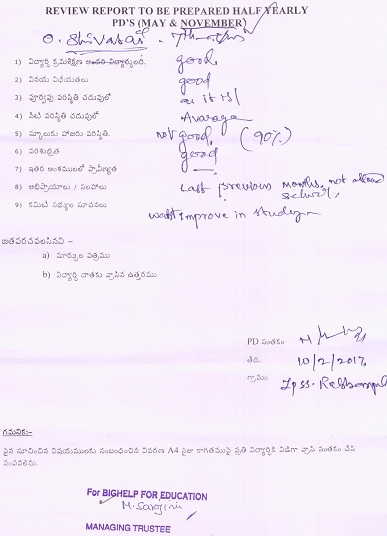 REVIEW REPORT TO BE PREPARED HALF YEARLY
PD'S (MAY & NOVEMBER)
O. Shivasai - 7th
1) విద్యార్థి క్రమశిక్షణ good.
2) వినయ విధేయతలు good
3) పూర్వపు పరిస్థితి చదువులో as it is
4) నేటి పరిస్థితి చదువులో Avarage
5) స్కూలుకు హాజరు పరిస్థితి. not good, (90%)
6) పరిశుభ్రత good
7) ఇతర అంశములలో ప్రావీణ్యత —
8) అభిప్రాయాలు / సలహాలు Last previous months. not
9) కమిటీ సభ్యుల సూచనలు improve in
జతపరచవలసినవి –
a) మార్కుల పత్రము
b) విద్యార్థి దాతకు వ్రాసిన ఉత్తరము
PD సంతకం
తేది. 10/2/2017.
గ్రామం Zpss.
గమనిక:-
పైన సూచించిన విషయములకు సంబంధించిన వివరణ A4 సైజు కాగితముపై ప్రతి విద్యార్థికి విడిగా వ్రాసి సంతకం చేసి
పంపవలెను.
For BIGHELP FOR EDUCATION
M. Sarojini
MANAGING TRUSTEE